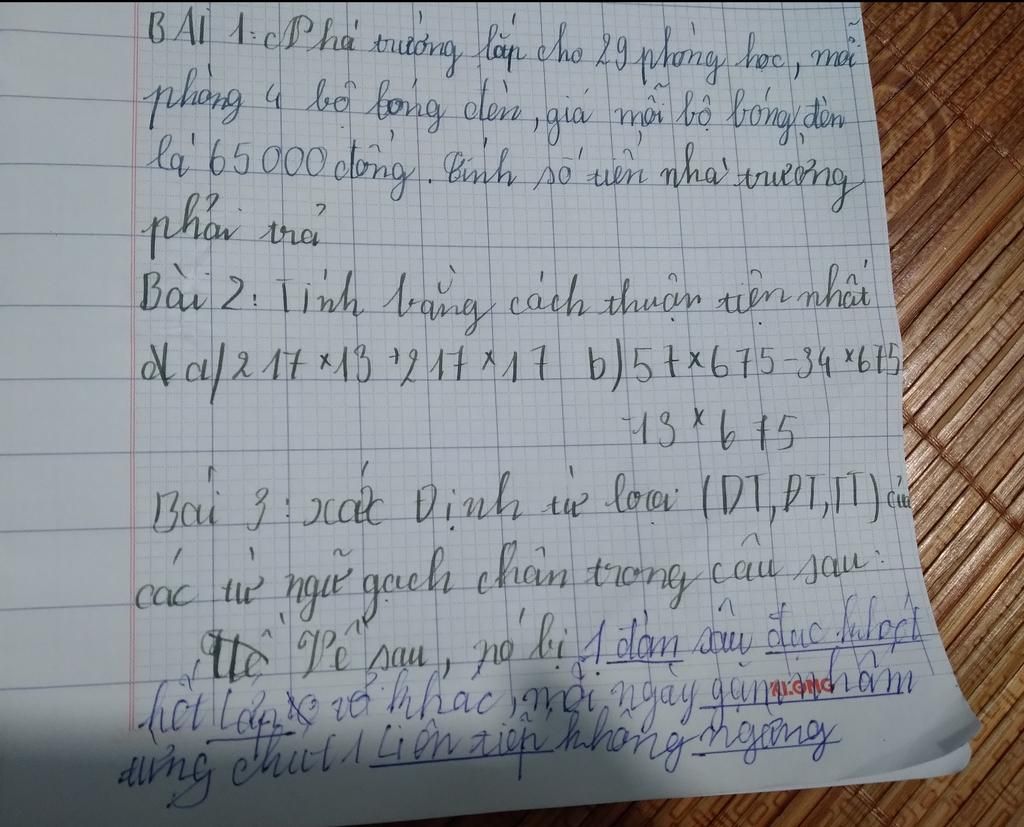 BÀI 1: Nhà trường lắp cho 29 phòng học, mỗi
phòng 4 bộ bóng đèn, giá mỗi bộ bóng đèn
là 65000 đồng. Tính số tiền nhà trường
phải trả
Bài 2: Tính bằng cách thuận tiện nhất
a) 217 × 13 + 217 × 17 b) 57 × 675 - 34 × 675
- 13 × 675
Bài 3: xác Định từ loại (DT, ĐT, TT) của
các từ ngữ gạch chân trong câu sau:
Về sau, nó bị 1 đám sâu đục khoét
hết lớp vỏ khác, mỗi ngày gặm nhấm
từng chút 1 liên tiếp không ngừng